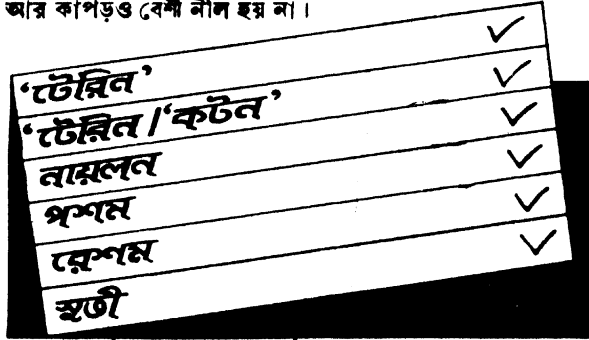 আর কাপড়ও বেশী নীল হয় না।
‘টেরিন’ ✓
‘টেরিন/‘কটন’ ✓
নায়লন ✓
পশম ✓
রেশম ✓
সুতী ✓